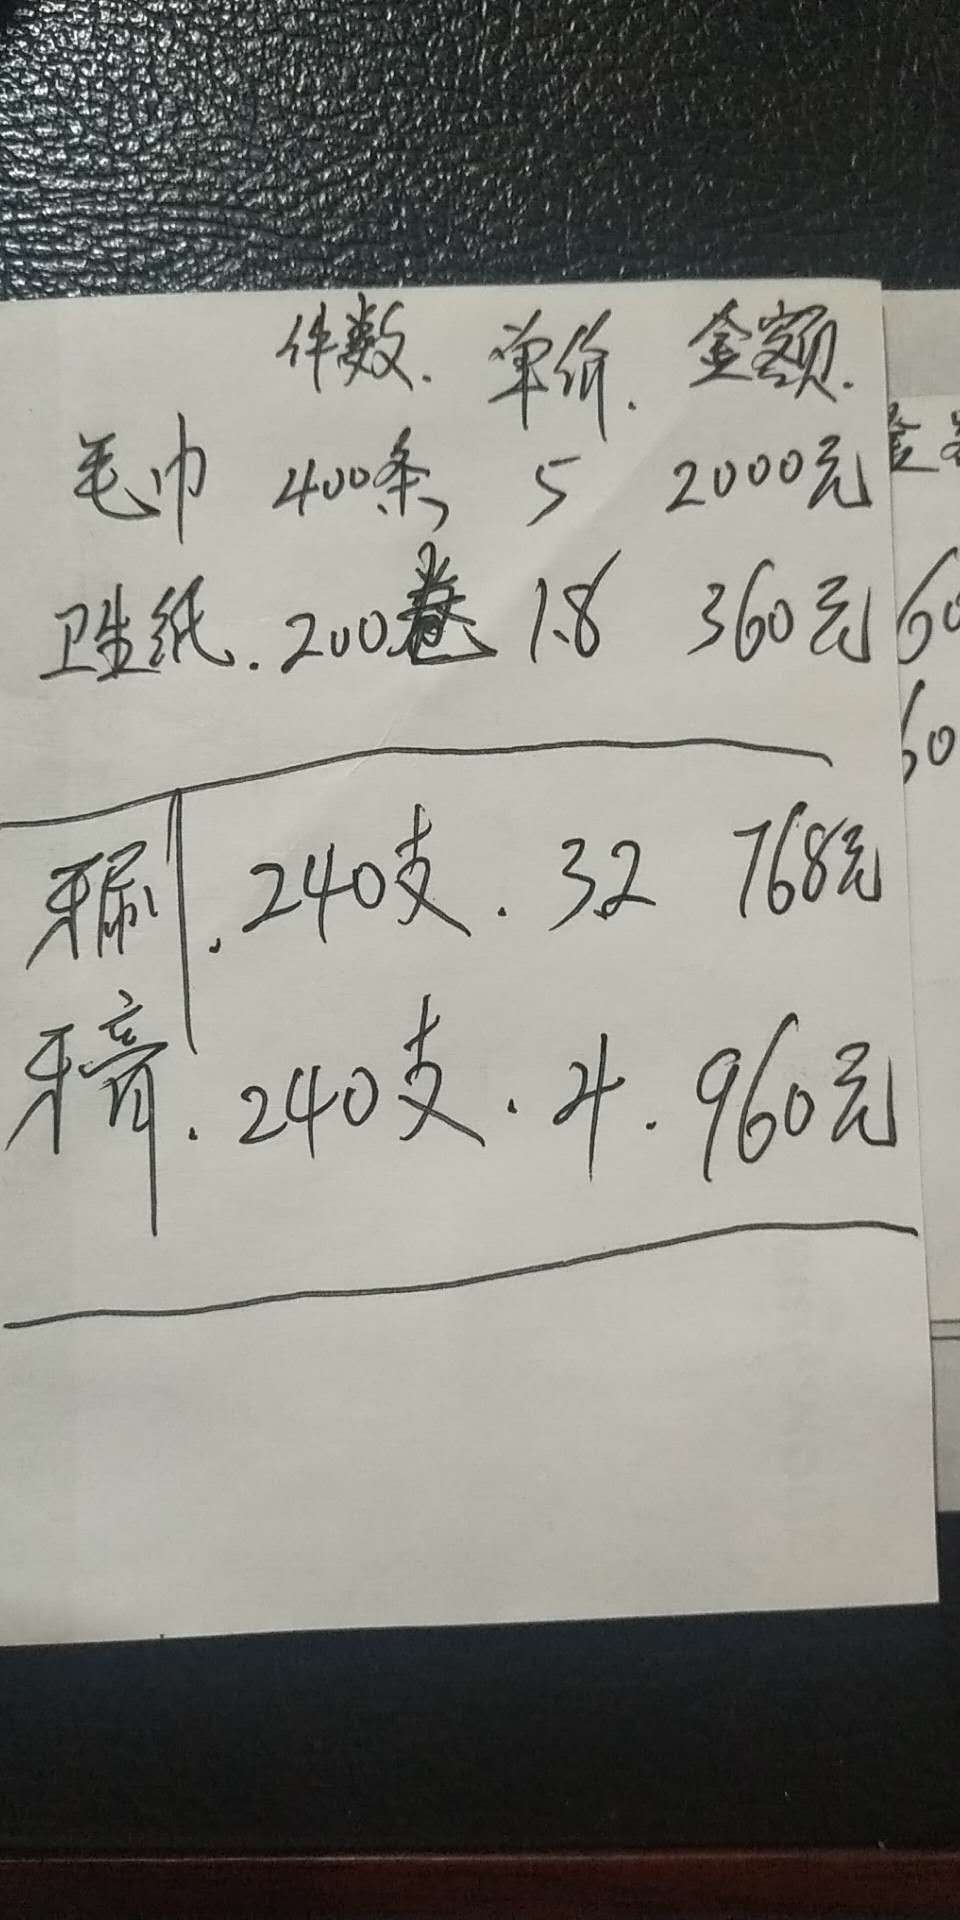 件数. 单价. 金额.
毛巾 400条 5 2000元
卫生纸. 200卷 1.8 360元
牙刷. 240支. 3.2 768元
牙膏. 240支. 4. 960元
金
60
60